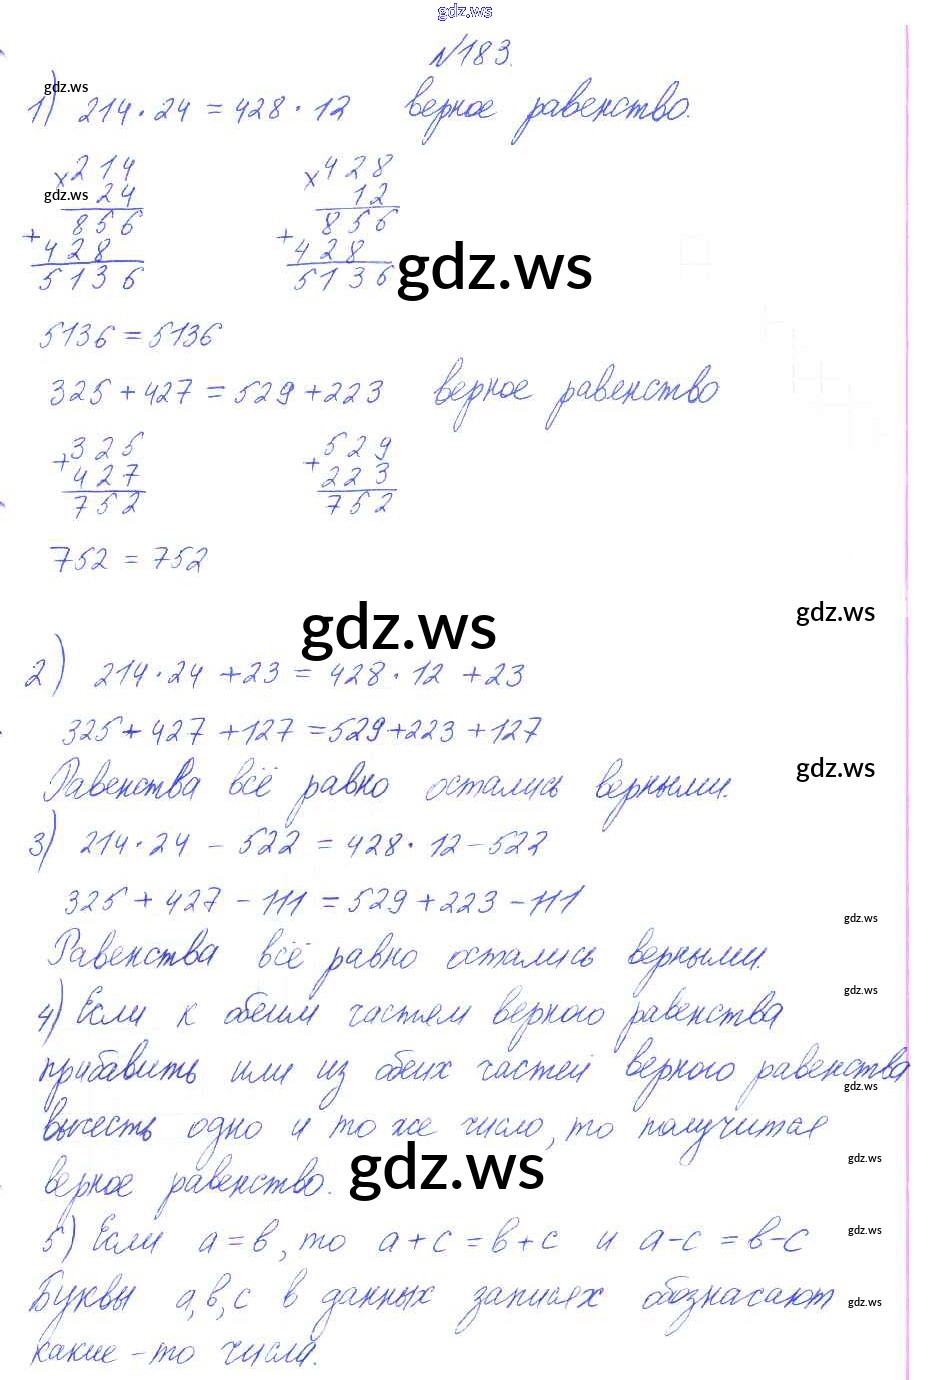 gdz.ws
№183.
gdz.ws
1) 214·24 = 428·12 верное равенство.
×214 ×428
gdz.ws 24 12
856 856
+428 +428
5136 5136
gdz.ws
5136 = 5136
325 + 427 = 529 + 223 верное равенство
+325 +529
427 223
752 752
752 = 752
gdz.ws gdz.ws
2) 214·24 + 23 = 428·12 + 23
325 + 427 + 127 = 529 + 223 + 127
Равенства всё равно остались верными. gdz.ws
3) 214·24 - 522 = 428·12 - 522
325 + 427 - 111 = 529 + 223 - 111
gdz.ws
Равенства всё равно остались верными.
gdz.ws
4) Если к обеим частям верного равенства
прибавить или из обеих частей верного равенства
gdz.ws
вычесть одно и то же число, то получится
gdz.ws gdz.ws
верное равенство.
5) Если a = b, то a + c = b + c и a - c = b - c gdz.ws
Буквы a, b, c в данных записях обозначают gdz.ws
какие-то числа.